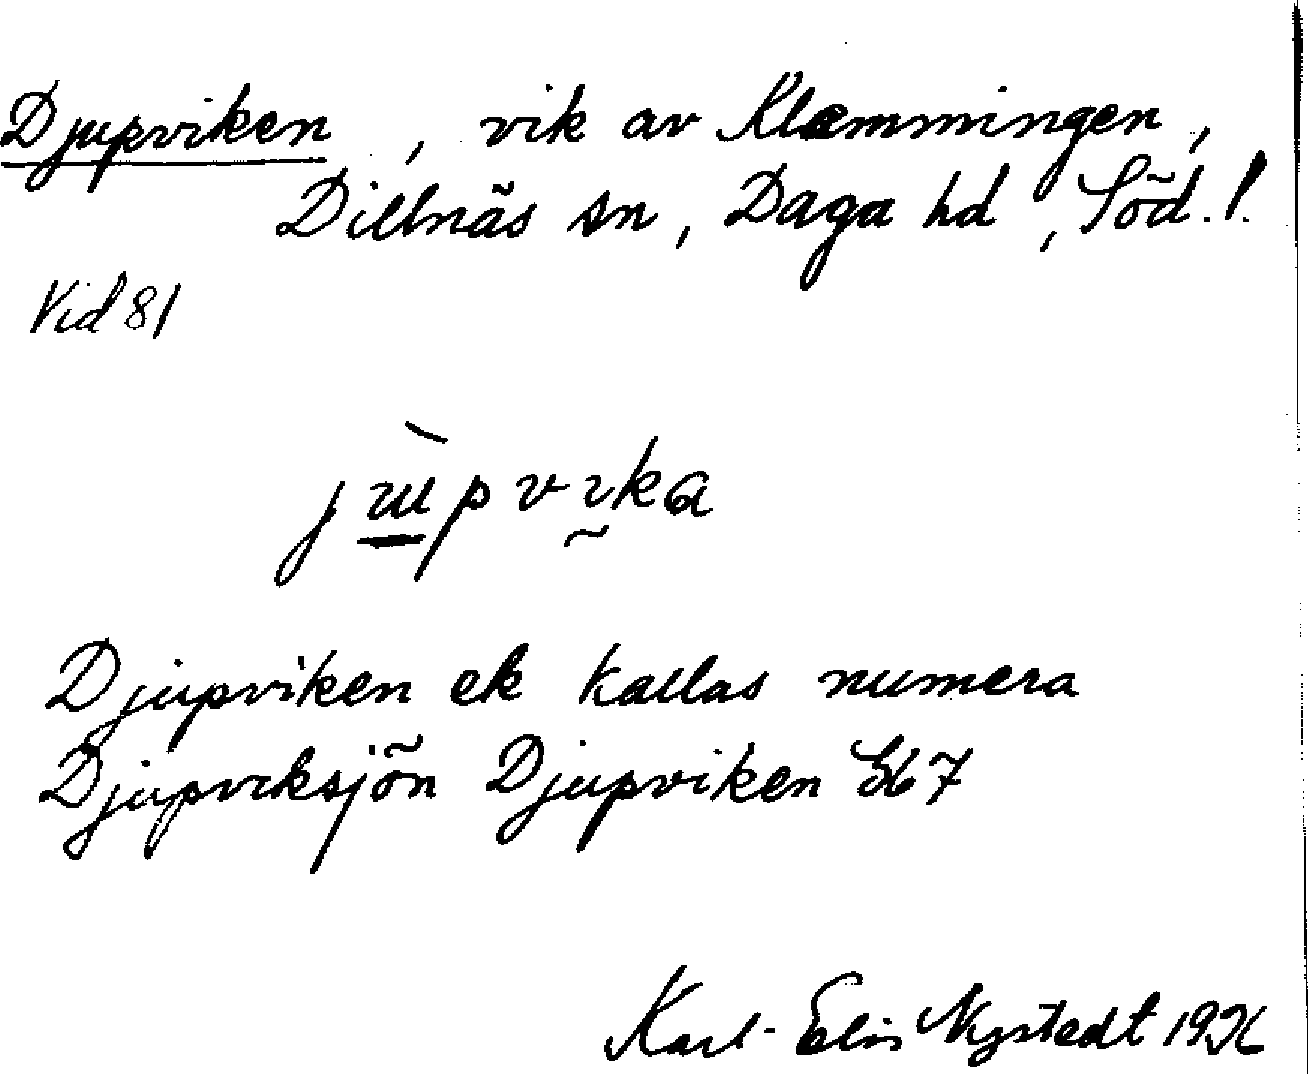 Djupviken, vik av Klämmingen,
Dillnäs sn, Daga hd, Söd. l.
Vid 81
Djupviken ek kallas numera
Djupviksjön Djupviken
Karl-Elis Nystedt 1926